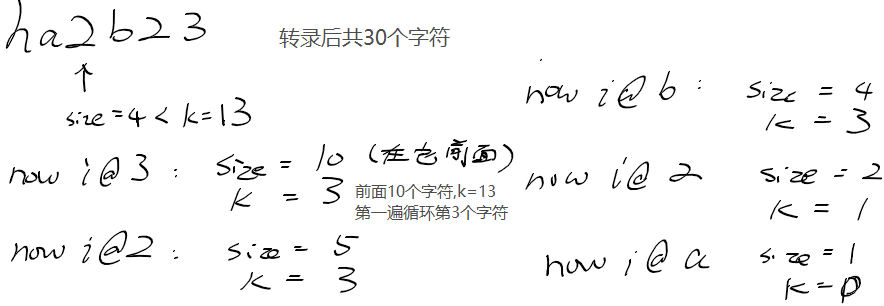 ha2b23
转录后共30个字符
↑
size=4 < k=13
now i@3: size = 10 (在它前面)
k = 3
前面10个字符,k=13
第一遍循环第3个字符
now i@2: size = 5
k = 3
now i@b: size = 4
k = 3
now i@2 size = 2
k = 1
now i@a size = 1
k=0